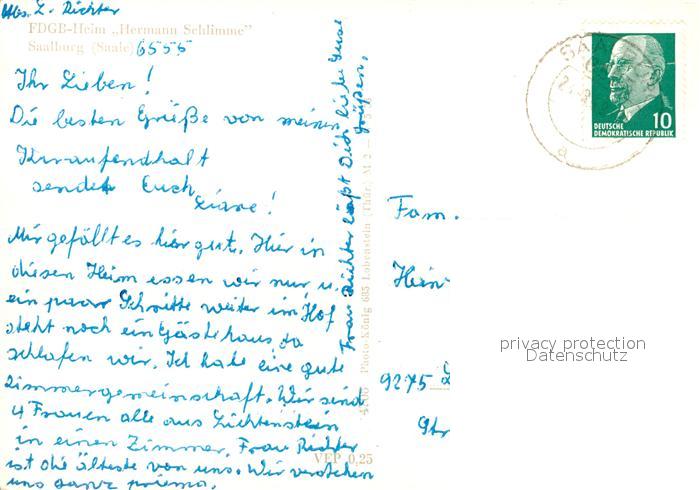 Abs. L. Richter
FDGB-Heim „Hermann Schlimme"
Saalburg (Saale) 6555
Ihr Lieben!
Die besten Grüße von meinem
Kuraufendhalt
sendet Euch
Liane!
Mir gefällt es hier gut. Hier in
diesen Heim essen wir nur u.
ein paar Schritte weiter im Hof
steht noch ein Gästehaus, da
schlafen wir. Ich habe eine gute
Zimmergemeinschaft. Wir sind
4 Frauen alle aus Lichtenstein
in einen Zimmer. Frau Richter
ist die älteste von uns. Wir verstehen
uns ganz priema.
Frau Richter läßt Dich liebe Gusel
grüßen.
Photo-König 685 Lobenstein (Thür.) M 2
VEP 0,25
DEUTSCHE
DEMOKRATISCHE REPUBLIK
10
SAAL
Fam.
Hein
9275 L
Str
privacy protection
Datenschutz